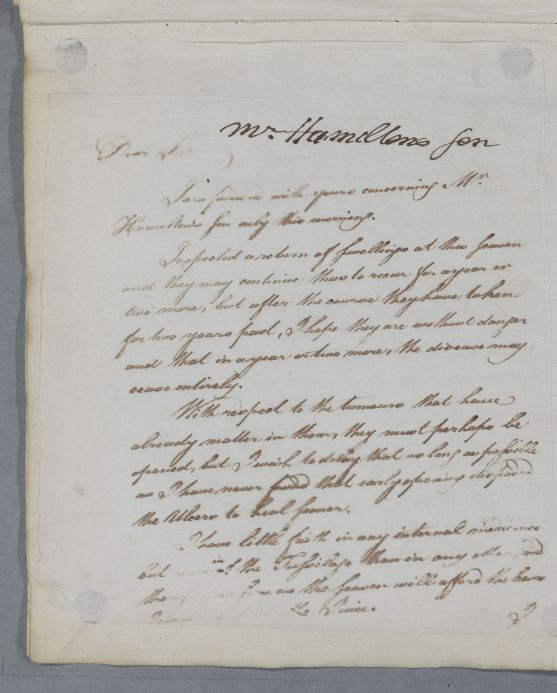 Mr. Hamiltons son
Dear Sir
I am favoured with yours concerning Mr.
Hamiltons son only this morning.
I expected a return of swellings at this season
and they may continue thus to recur for a year or
two more, but after the course they have taken
for two years past, I hope they are without danger
and that in a year or two more, the disease may
cease entirely.
With respect to the tumours that have
already matter in them, they must perhaps be
opened, but I wish to delay that as long as possible
as I have never found that early opening disposed
the Ulcers to heal sooner.
I have little faith in any internal medicine
but in the Tussilago than in any other, and
as the season will afford the
the Juice.
I